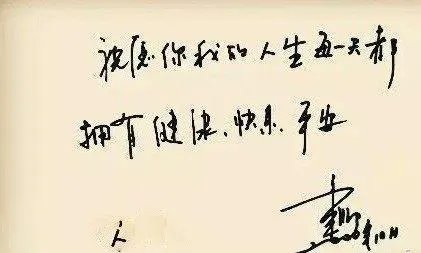 祝愿你我的人生每一天都
拥有健康、快乐、平安
人